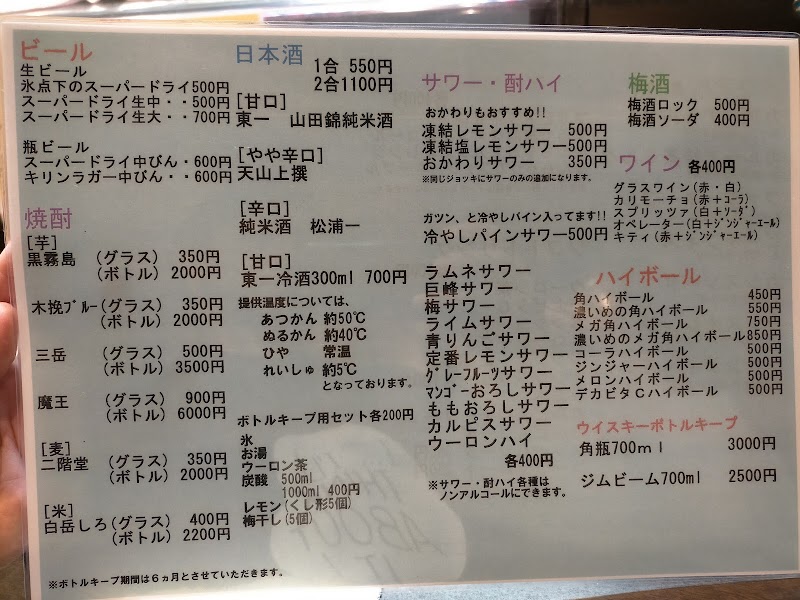 ビール
生ビール
氷点下のスーパードライ500円
スーパードライ生中・・500円
スーパードライ生大・・700円
瓶ビール
スーパードライ中びん・600円
キリンラガー中びん・・600円
焼酎
[芋]
黒霧島 (グラス) 350円
(ボトル) 2000円
木挽ブルー(グラス) 350円
(ボトル) 2000円
三岳 (グラス) 500円
(ボトル) 3500円
魔王 (グラス) 900円
(ボトル) 6000円
[麦]
二階堂 (グラス) 350円
(ボトル) 2000円
[米]
白岳しろ(グラス) 400円
(ボトル) 2200円
※ボトルキープ期間は6ヵ月とさせていただきます。
日本酒 1合 550円
2合1100円
[甘口]
東一 山田錦純米酒
[やや辛口]
天山上撰
[辛口]
純米酒 松浦一
[甘口]
東一冷酒300ml 700円
提供温度については、
あつかん 約50℃
ぬるかん 約40℃
ひや 常温
れいしゅ 約5℃
となっております。
ボトルキープ用セット各200円
氷
お湯
ウーロン茶
炭酸 500ml
1000ml 400円
レモン(くし形5個)
梅干し(5個)
サワー・酎ハイ
おかわりもおすすめ!!
凍結レモンサワー 500円
凍結塩レモンサワー500円
おかわりサワー 350円
※同じジョッキにサワーのみの追加になります。
ガツン、と冷やしパイン入ってます!!
冷やしパインサワー500円
ラムネサワー
巨峰サワー
梅サワー
ライムサワー
青りんごサワー
定番レモンサワー
グレープフルーツサワー
マンゴーおろしサワー
ももおろしサワー
カルピスサワー
ウーロンハイ
各400円
※サワー・酎ハイ各種は
ノンアルコールにできます。
梅酒
梅酒ロック 500円
梅酒ソーダ 400円
ワイン 各400円
グラスワイン(赤・白)
カリモーチョ(赤+コーラ)
スプリッツァ(白+ソーダ)
オペレーター(白+ジンジャーエール)
キティ(赤+ジンジャーエール)
ハイボール
角ハイボール 450円
濃いめの角ハイボール 550円
メガ角ハイボール 750円
濃いめのメガ角ハイボール850円
コーラハイボール 500円
ジンジャーハイボール 500円
メロンハイボール 500円
デカビタCハイボール 500円
ウイスキーボトルキープ
角瓶700ml 3000円
ジムビーム700ml 2500円